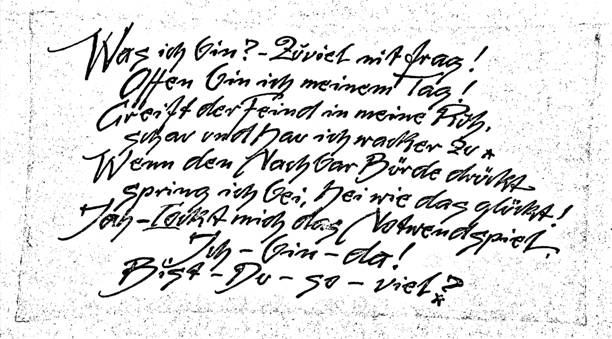 Was ich bin? - Zuviel nit frag!
Offen bin ich meinem Tag!
Greift der Feind in meine Ruh,
schau und hau ich wacker zu.
Wenn den Nachbar Bürde drückt
spring ich bei, hei wie das glückt!
Jah - lockt mich das Notwendspiel.
Ich - bin - da!
Bist - Du - so - viel?